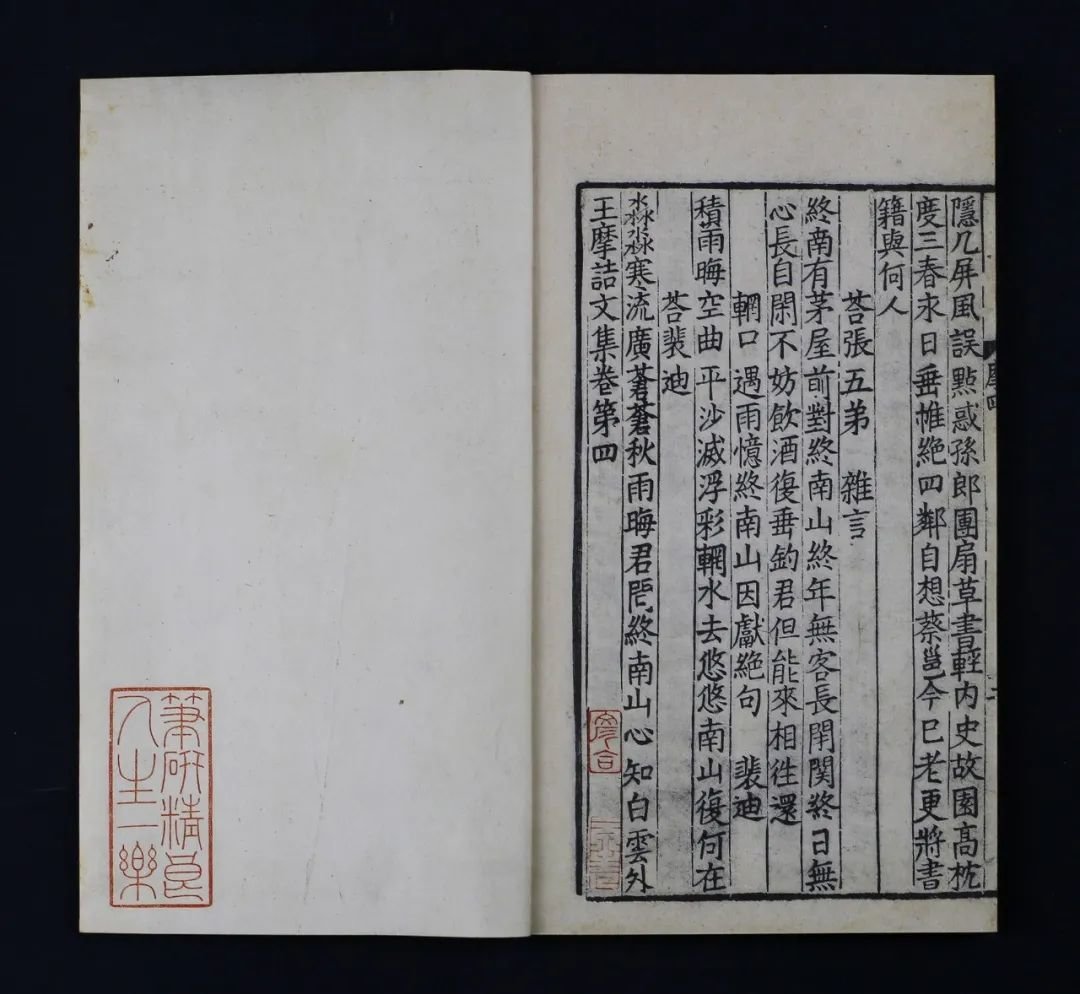 隱几屏風誤點惑孫郎團扇草書輕內史故園高枕
度三春永日垂帷絕四鄰自想蔡邕今已老更將書
籍與何人
荅張五弟　雜言
終南有茅屋前對終南山終年無客長閉關終日無
心長自閑不妨飲酒復垂釣君但能來相往還
輞口遇雨憶終南山因獻絕句　裴迪
積雨晦空曲平沙滅浮彩輞水去悠悠南山復何在
荅裴迪
淼淼寒流廣蒼蒼秋雨晦君問終南山心知白雲外
王摩詰文集卷第四
筆研精良
人生一樂